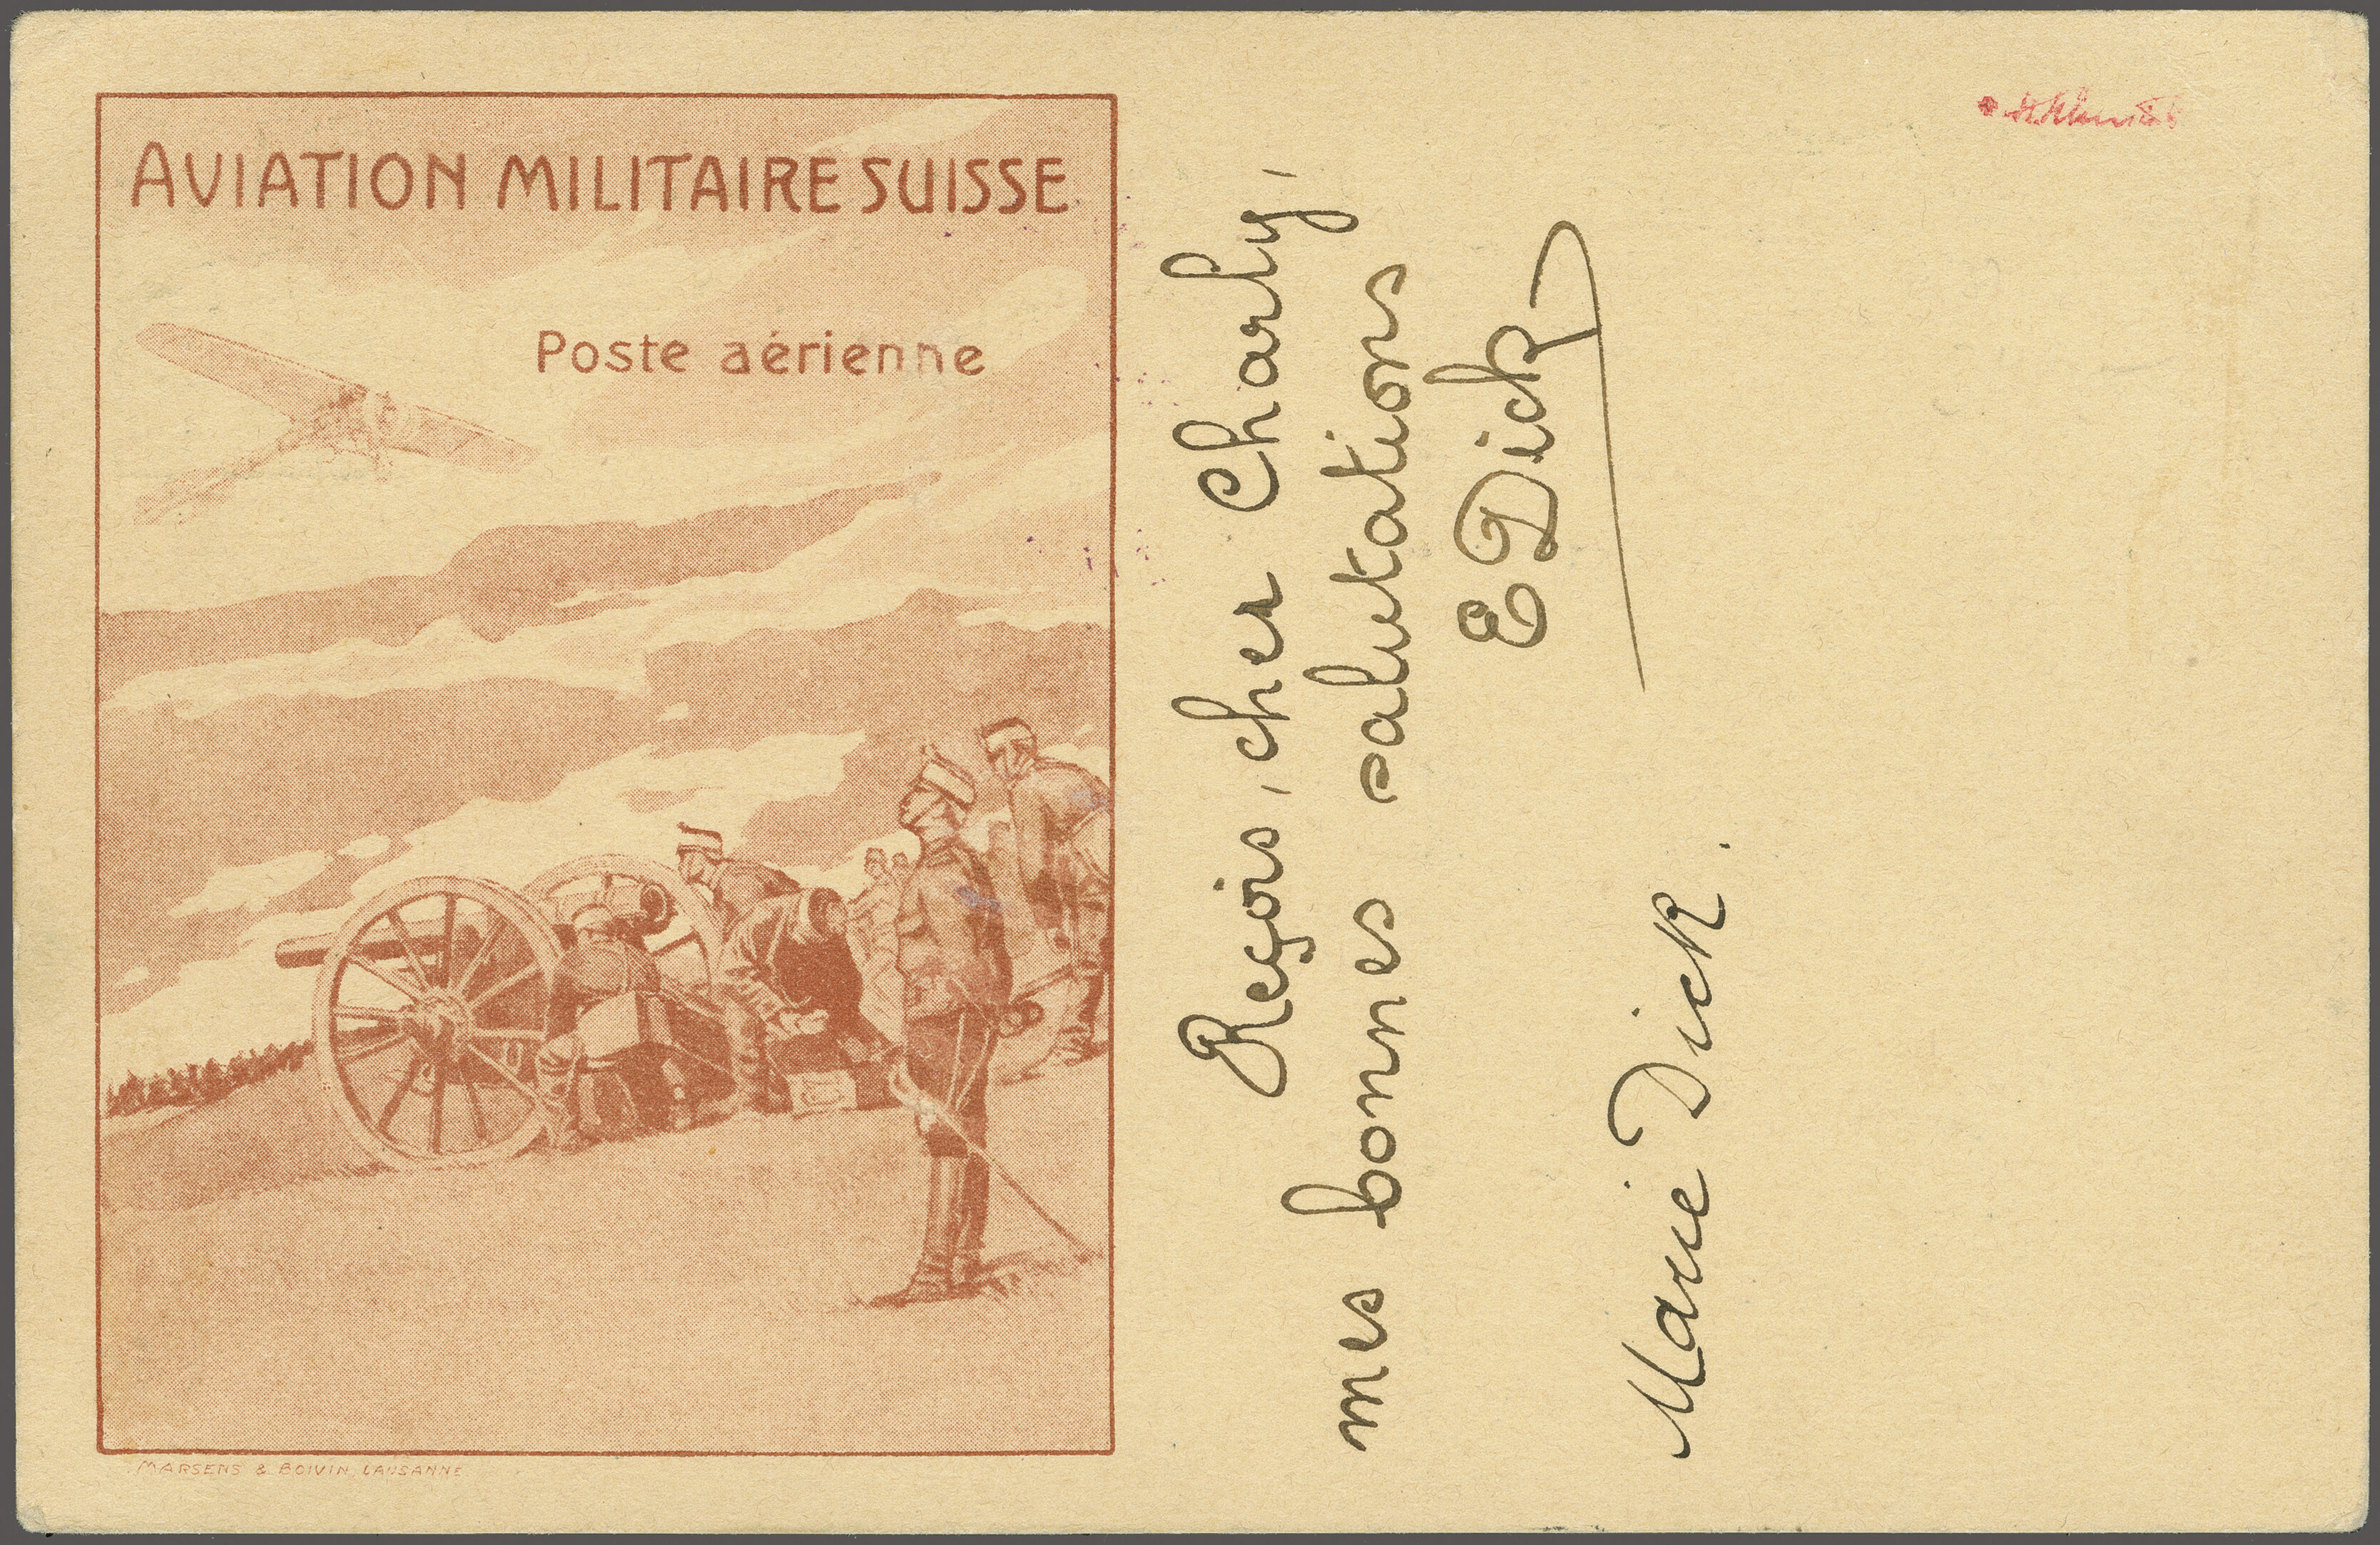 AVIATION MILITAIRE SUISSE
Poste aérienne
MARSENS & BOIVIN, LAUSANNE
Reçois, cher Charly,
mes bonnes salutations
E Dick
Marie Dick.